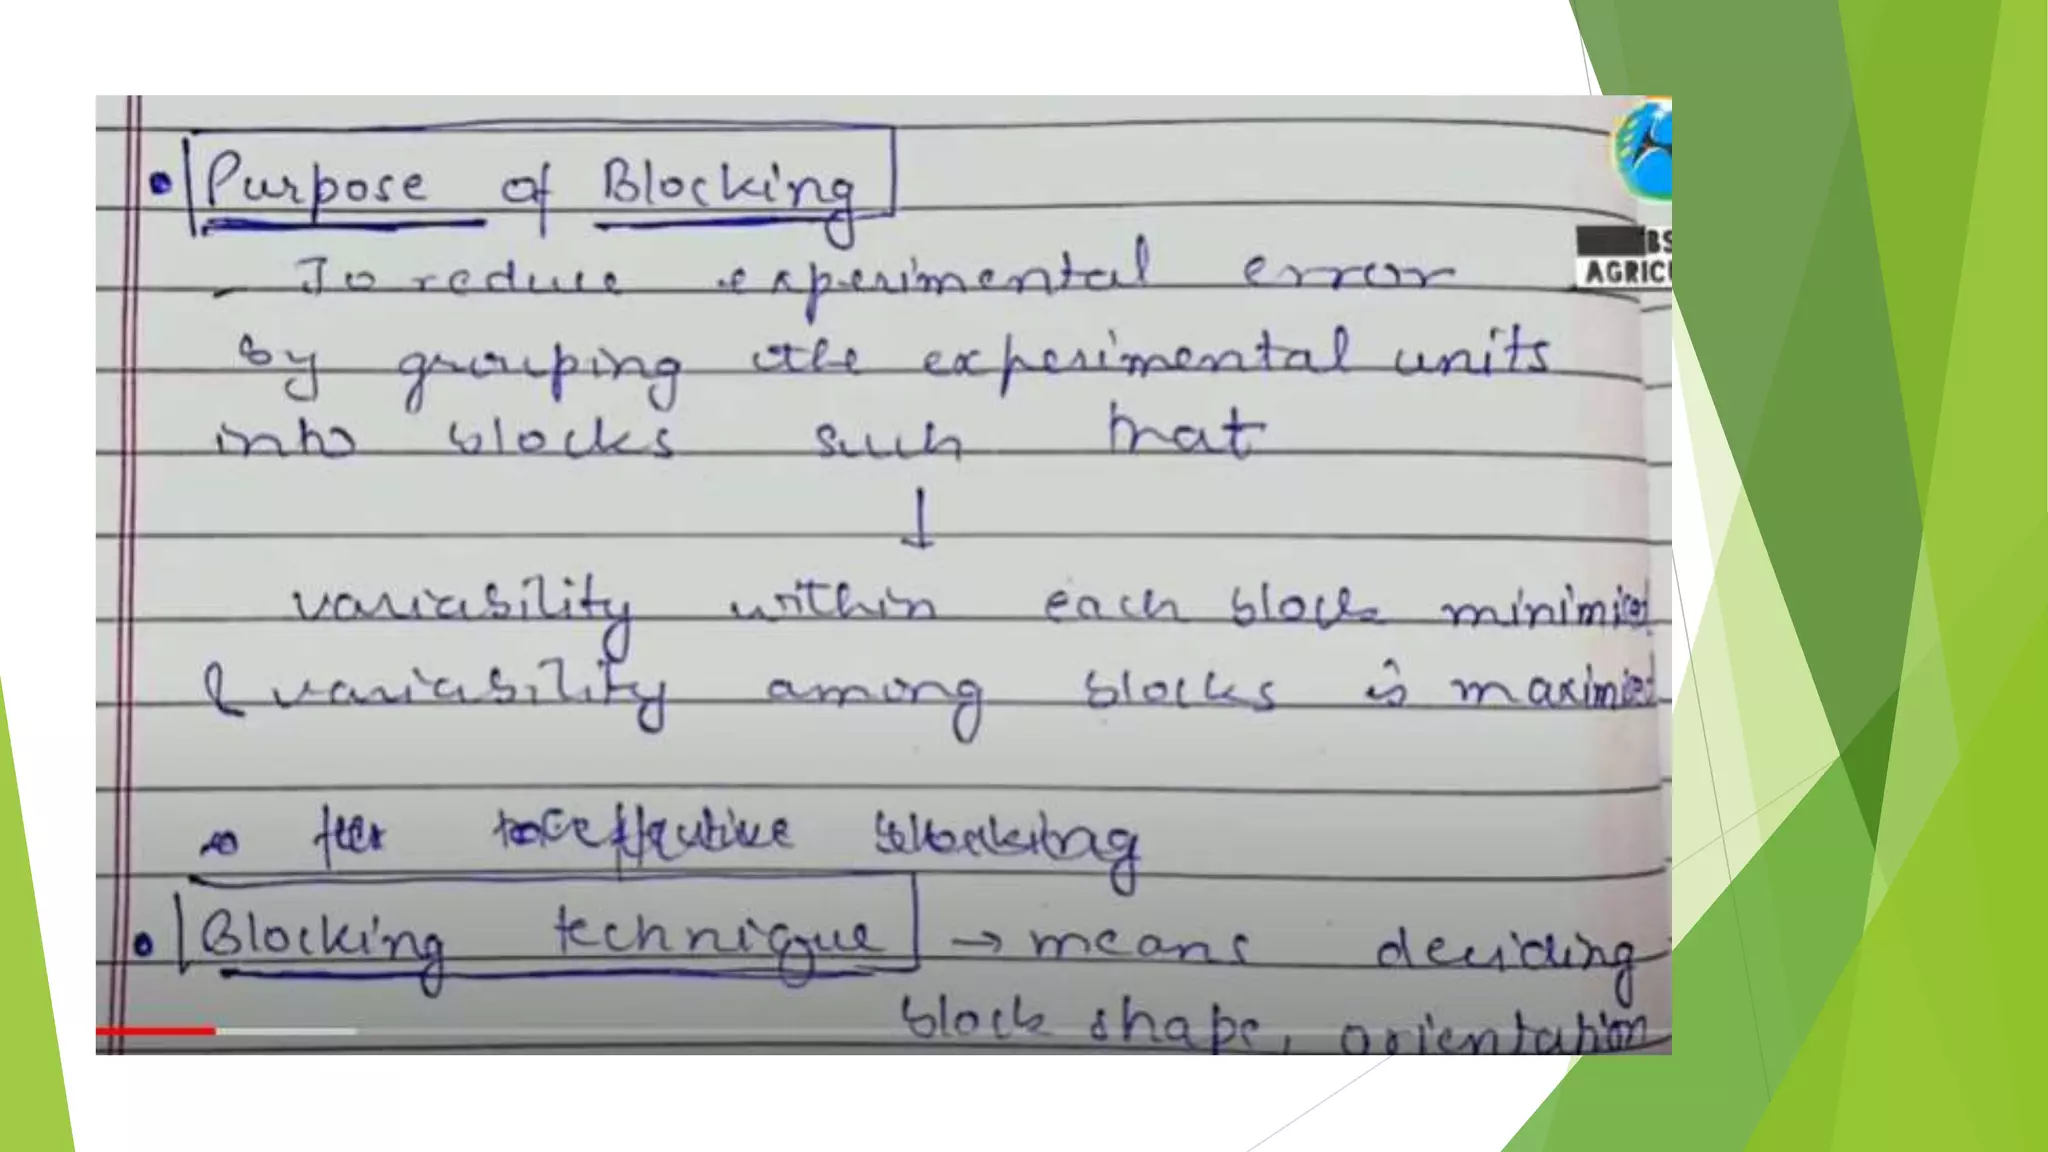 • Purpose of Blocking
BS
- To reduce experimental error
AGRICU
by grouping the experimental units
into blocks such that
↓
variability within each block minimized
& variability among blocks is maximized
effective blocking
• Blocking technique → means deciding
block shape, orientation